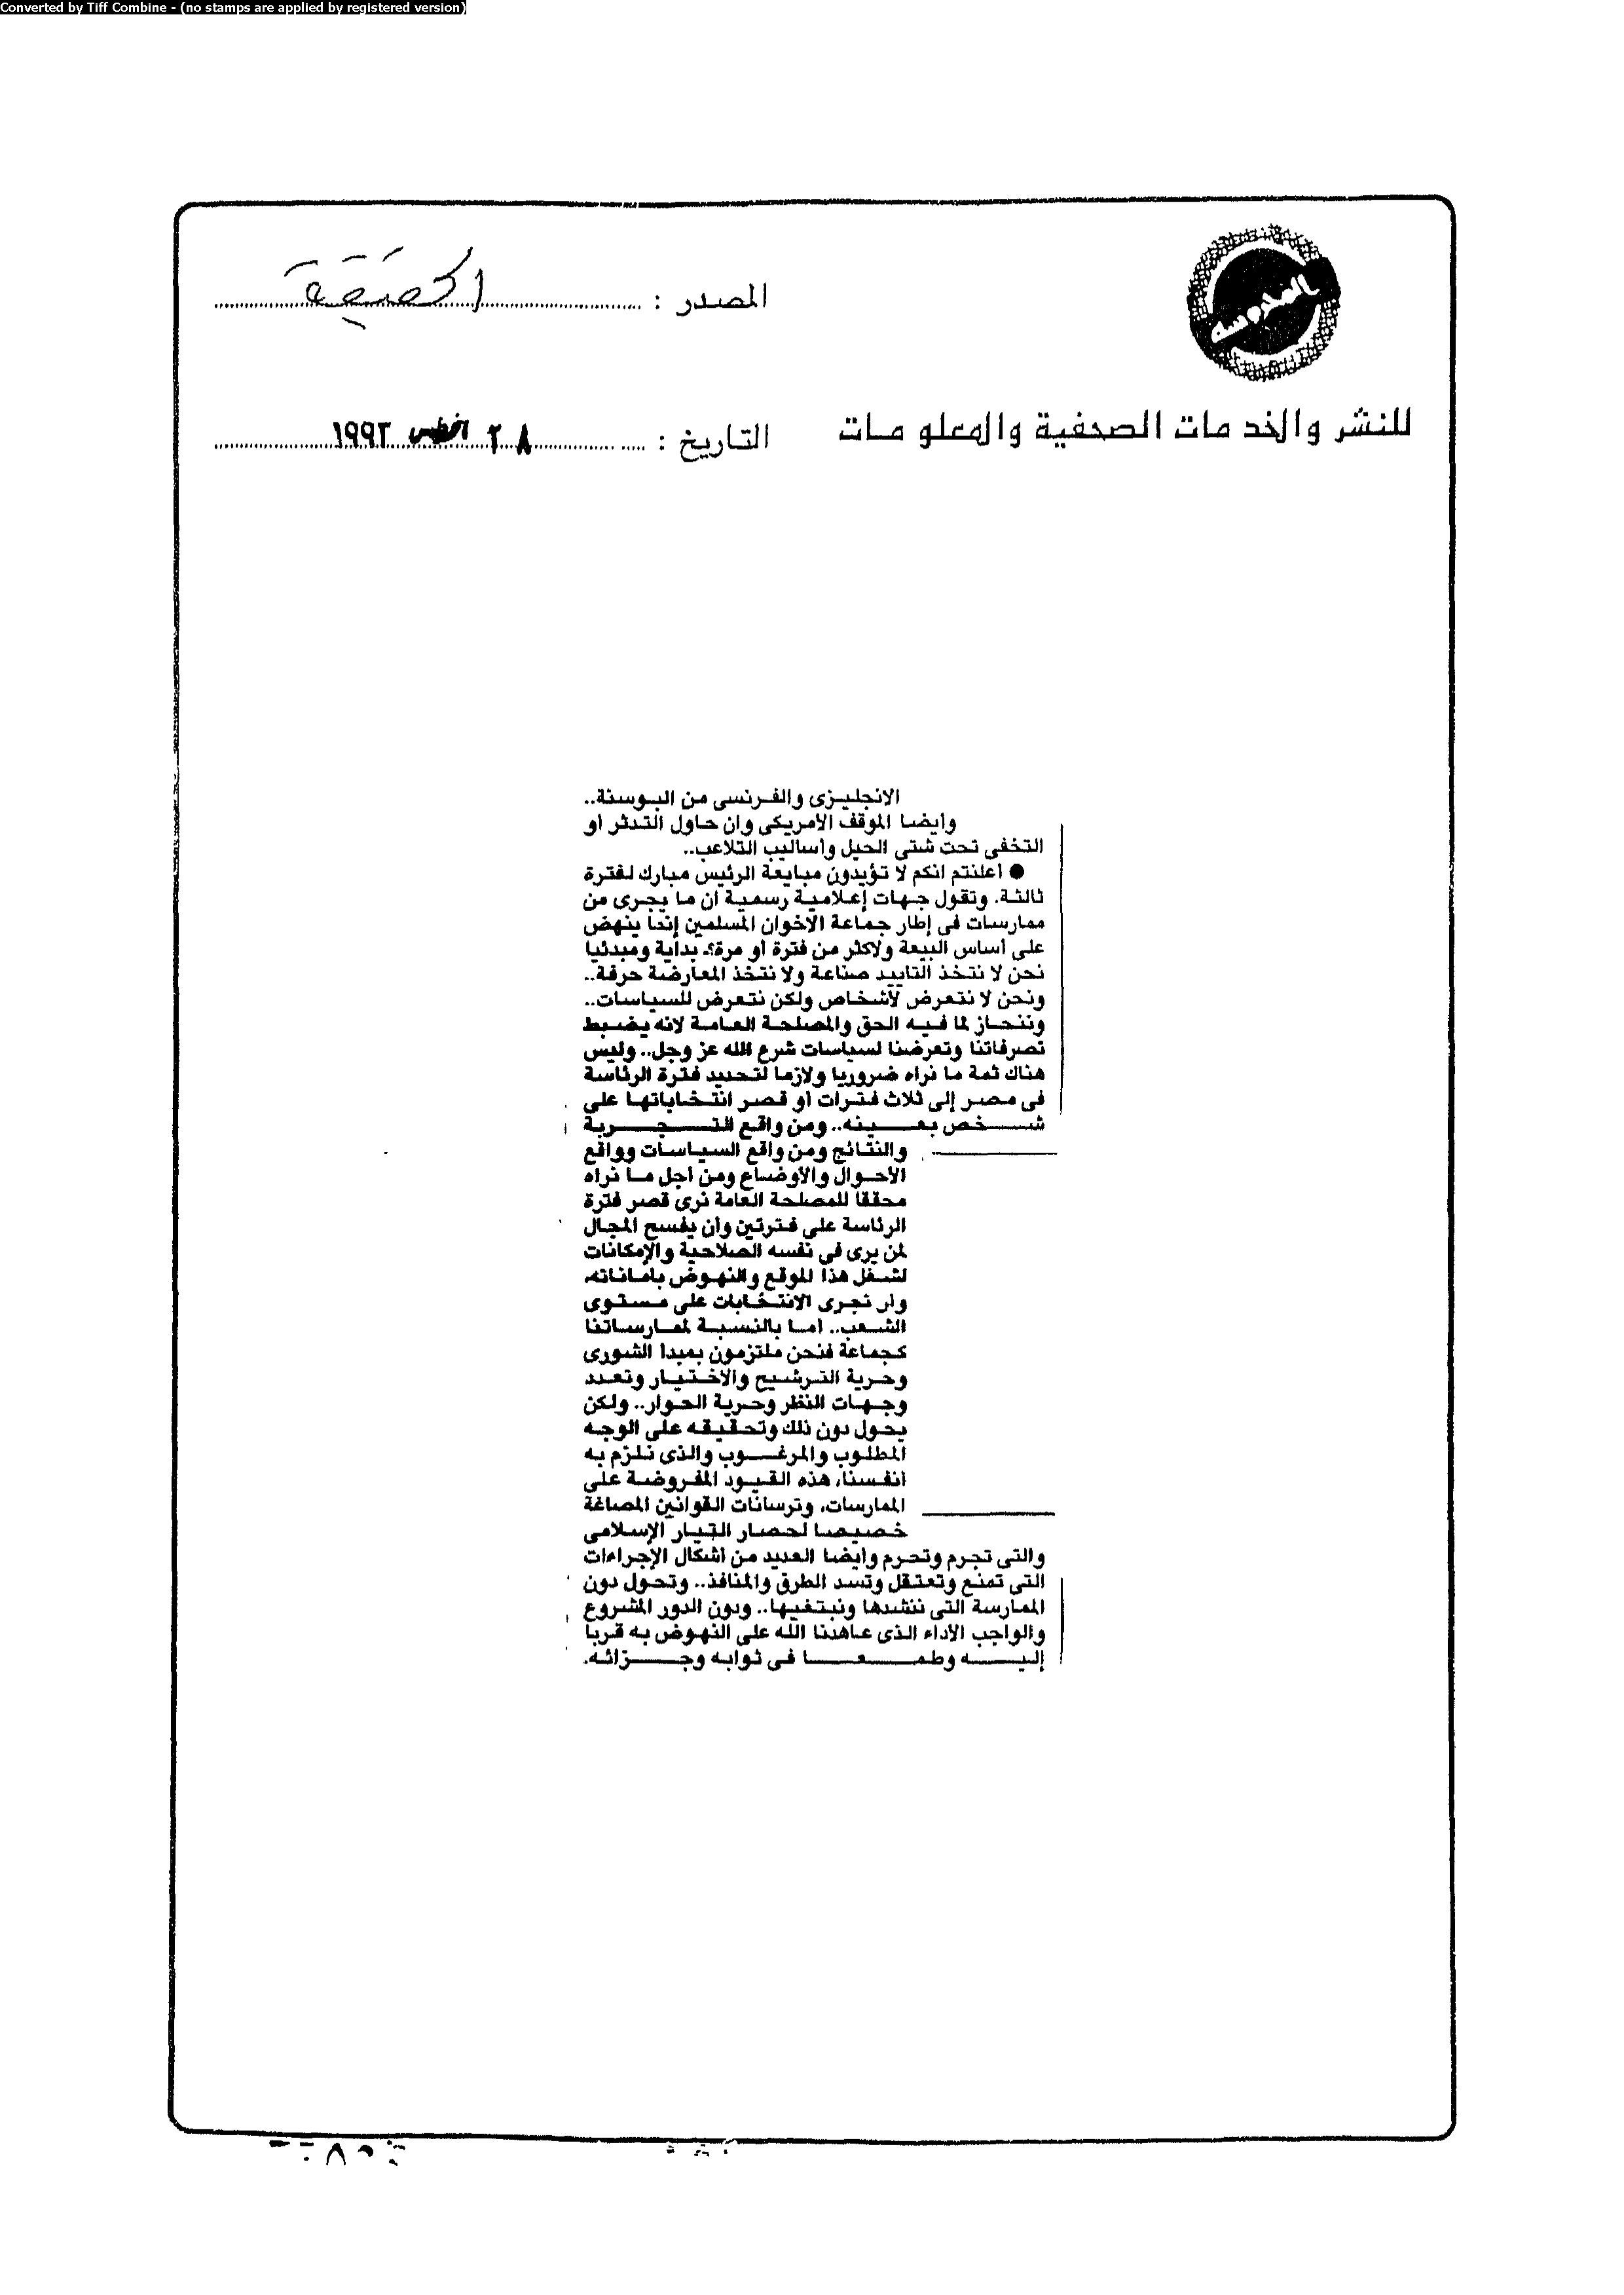 Converted by Tiff Combine - (no stamps are applied by registered version)
المحروسة
المصدر : الحقيقة
للنشر والخدمات الصحفية والمعلومات
التاريخ : ٢٨ أغسطس ١٩٩٣
الانجليزى والفرنسى من البوسنة..
وأيضا الموقف الأمريكى وان حاول التدثر أو
التخفى تحت شتى الحيل وأساليب التلاعب..
● أعلنتم انكم لا تؤيدون مبايعة الرئيس مبارك لفترة
ثالثة. وتقول جهات إعلامية رسمية ان ما يجرى من
ممارسات فى إطار جماعة الاخوان المسلمين إنما ينهض
على أساس البيعة ولاكثر من فترة أو مرة؟. بداية ومبدئيا
نحن لا نتخذ التاييد صناعة ولا نتخذ المعارضة حرفة..
ونحن لا نتعرض لأشخاص ولكن نتعرض للسياسات..
وننحاز لما فيه الحق والمصلحة العامة لانه يضبط
تصرفاتنا وتعرضنا لسياسات شرع الله عز وجل.. وليس
هناك ثمة ما نراه ضروريا ولازما لتحديد فترة الرئاسة
فى مصر إلى ثلاث فترات أو قصر انتخاباتها على
شخص بعينه.. ومن واقع التجربة
والنتائج ومن واقع السياسات وواقع
الأحوال والأوضاع ومن أجل ما نراه
محققا للمصلحة العامة نرى قصر فترة
الرئاسة على فترتين وان يفسح المجال
لمن يرى فى نفسه الصلاحية والإمكانات
لشغل هذا الموقع والنهوض بأماناته.
وان تجرى الانتخابات على مستوى
الشعب.. اما بالنسبة لممارساتنا
كجماعة فنحن ملتزمون بمبدا الشورى
وحرية الترشيح والاختيار وتعدد
وجهات النظر وحرية الحوار.. ولكن
يحول دون ذلك وتحقيقه على الوجه
المطلوب والمرغوب والذى نلزم به
انفسنا، هذه القيود المفروضة على
الممارسات، وترسانات القوانين المصاغة
خصيصا لحصار التيار الإسلامى
والتى تجرم وتحرم وأيضا العديد من أشكال الإجراءات
التى تمنع وتعتقل وتسد الطرق والمنافذ.. وتحول دون
الممارسة التى ننشدها ونبتغيها.. ودون الدور المشروع
والواجب الأداء الذى عاهدنا الله على النهوض به قربا
إليه وطمعا فى ثوابه وجزائه.